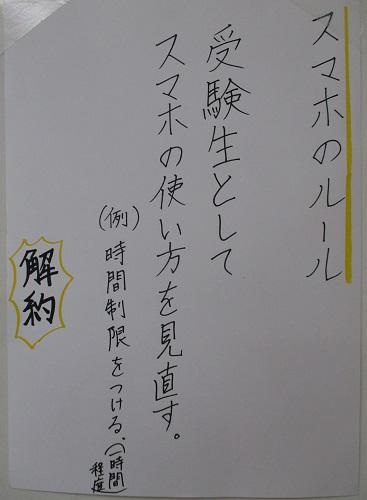 スマホのルール
受験生として
スマホの使い方を見直す。
(例)時間制限をつける、(一時間程度)
解約